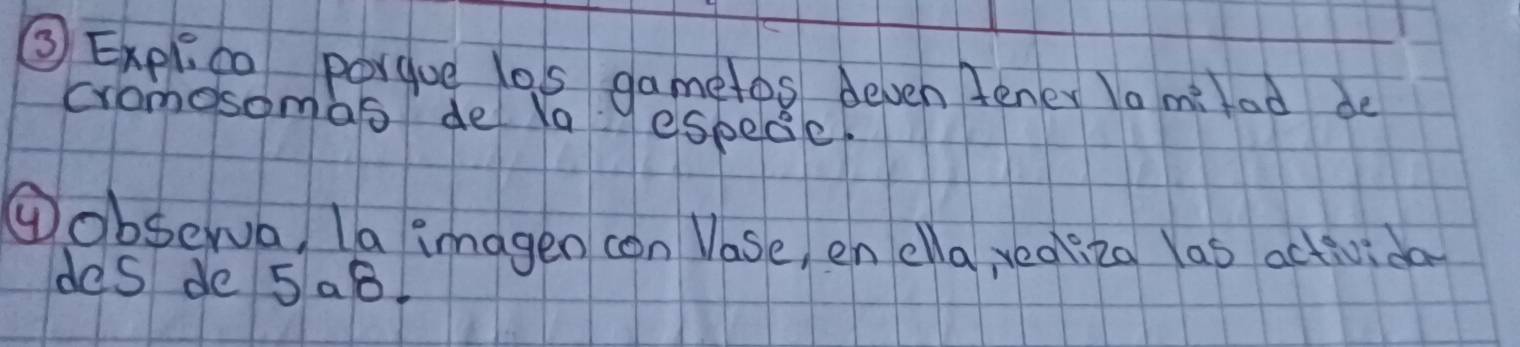 ③ Explica porque los gametos deven tener la mitad de
cromosomas de la especie.
④ observa, la imagen con Vase, en ella, realiza las activida
des de 5 a 8.